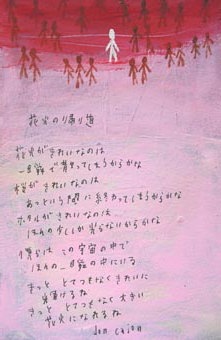 花火の帰り道
花火がきれいなのは
一瞬で消えてしまうからかな
桜がきれいなのは
あっという間に終わってしまうからかな
ホタルがきれいなのは
ほんの少ししか光らないからかな
僕らは この宇宙の中で
ほんの一瞬の中にいる
きっと とてつもなくきれいに
輝けるね
きっと とてつもなく大きい
花火になれるね